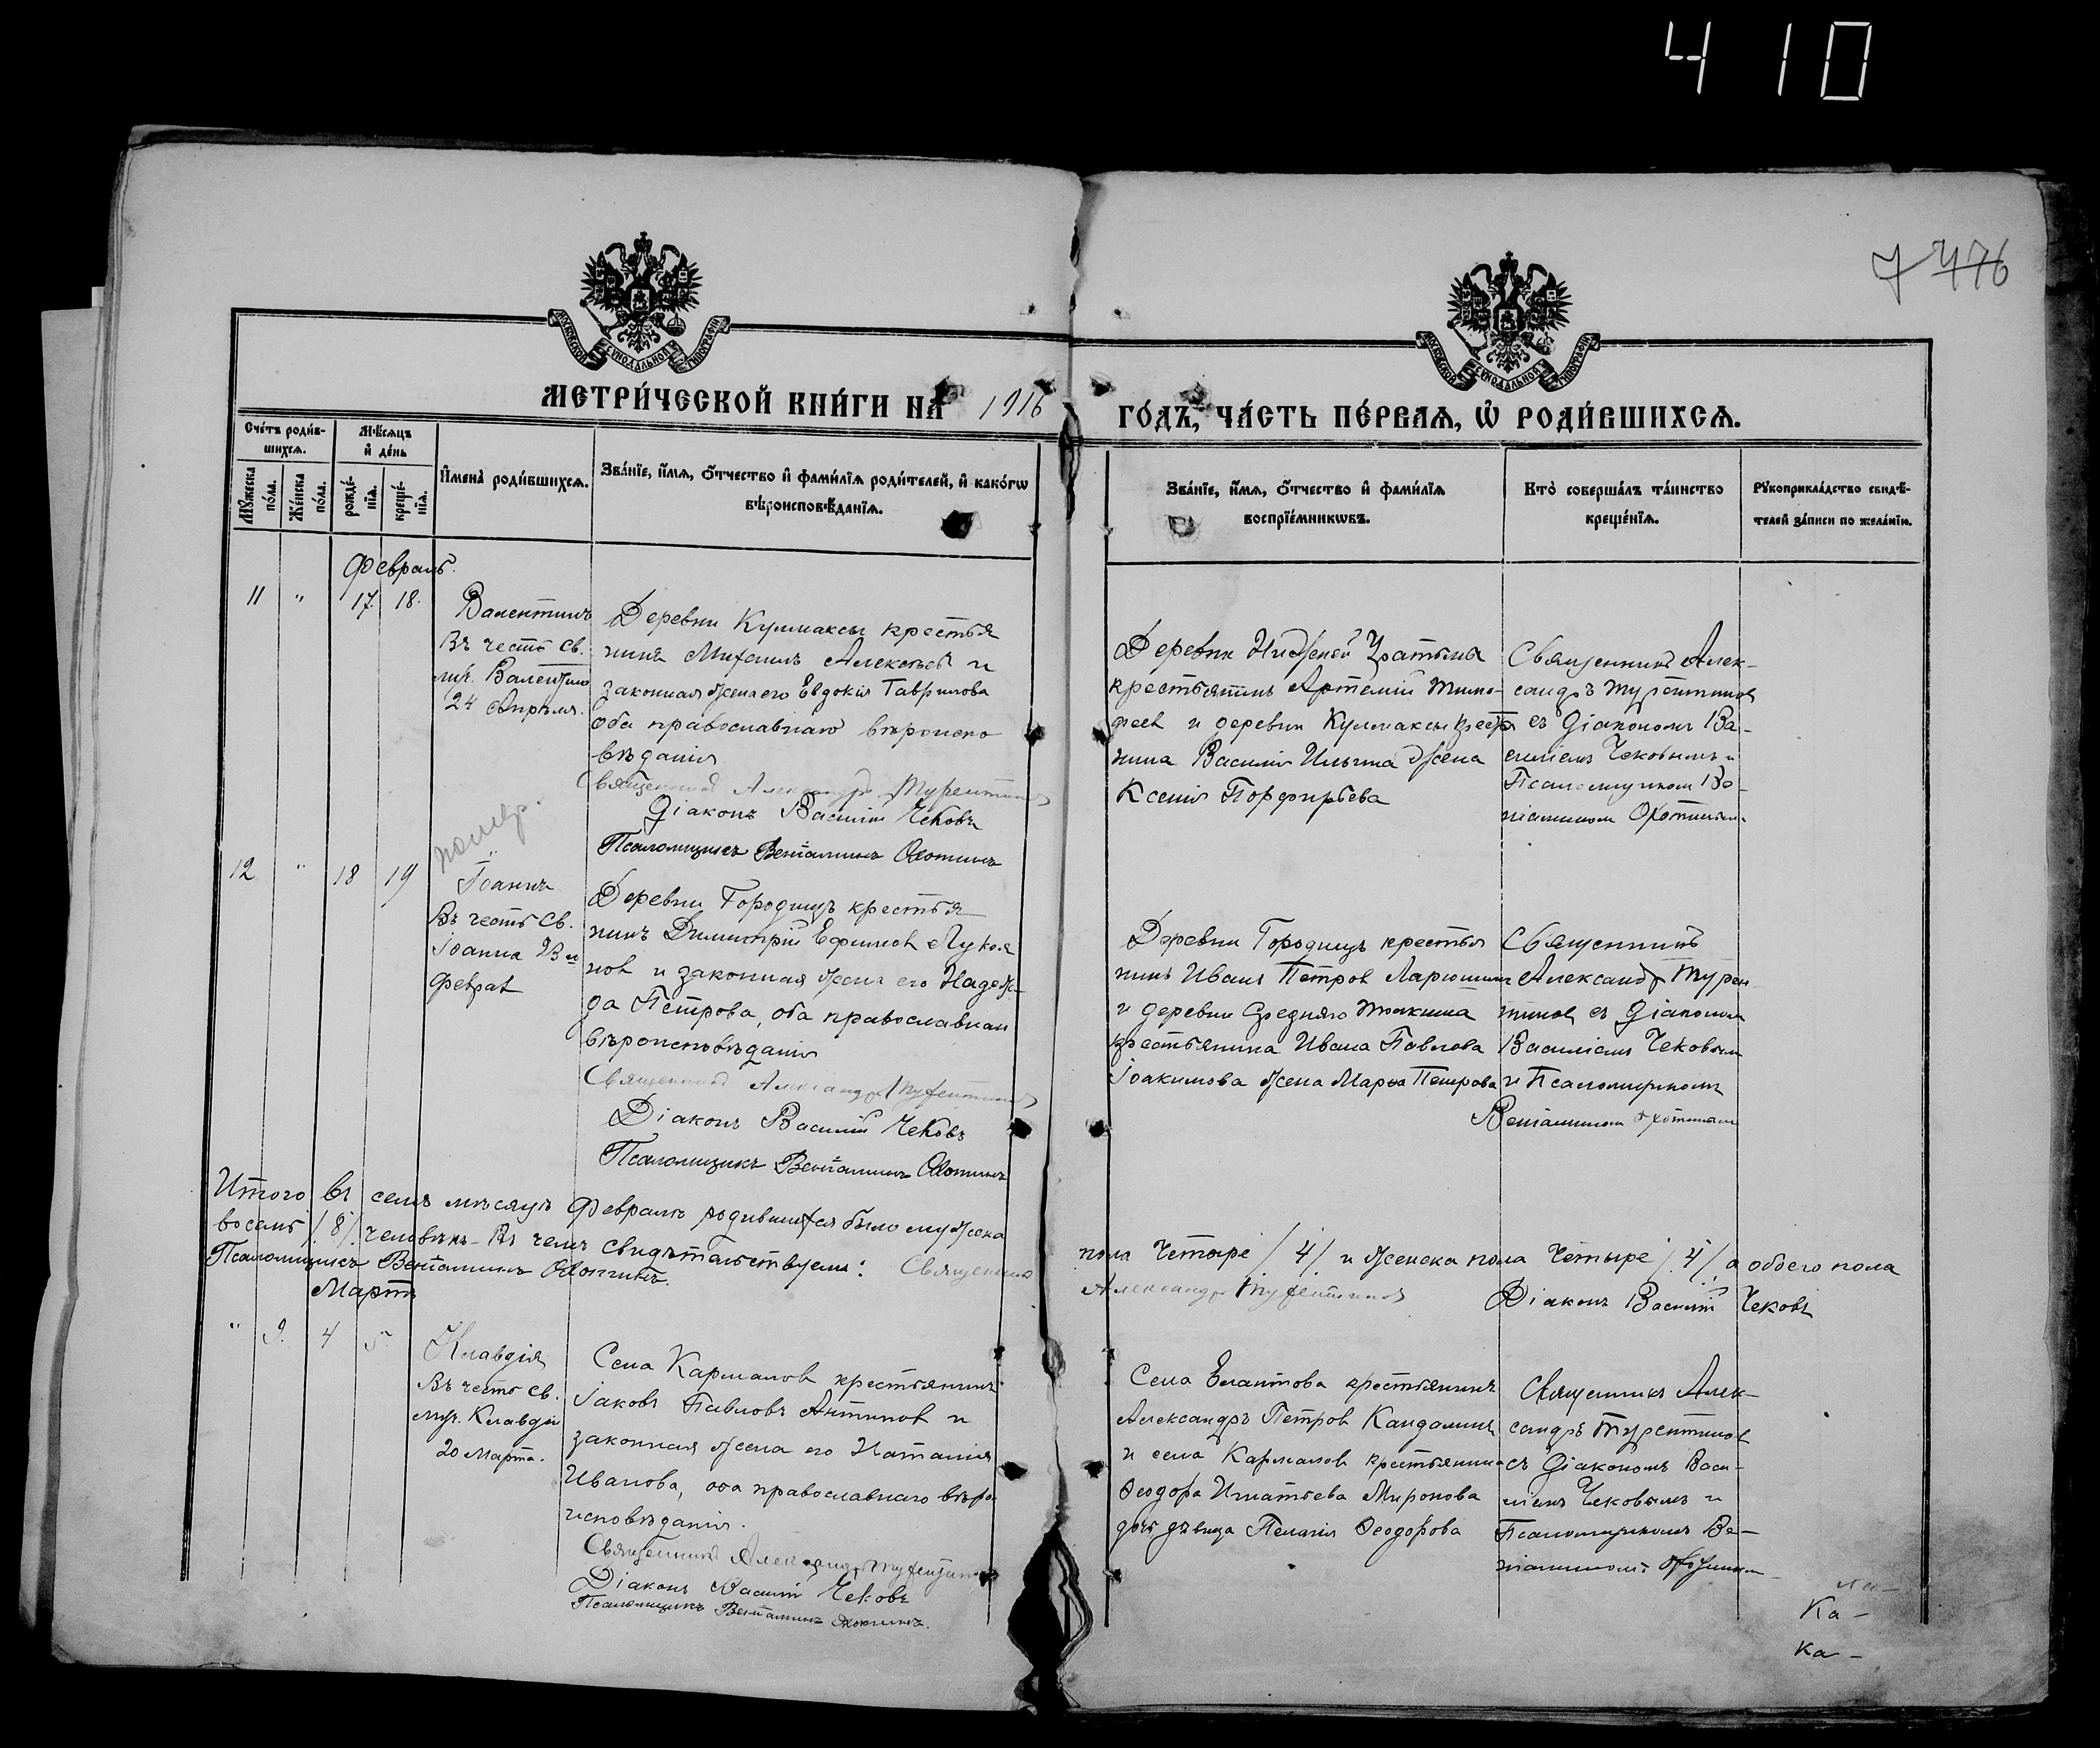 410
7 476
МОСКОВСКОЙ СѴНОДАЛЬНОЙ ТИПОГРАФІИ
МОСКОВСКОЙ СѴНОДАЛЬНОЙ ТИПОГРАФІИ
МЕТРИ́ЧЕСКОЙ КНИ́ГИ НА̀ 1916
ГО́ДЪ, ЧА́СТЬ ПЕ́РВАЯ, Ѡ҆ РОДИ́ВШИХСЯ.
Сче́тъ роди́в-
шихся.
Мѣ́сяцъ
и҆ де́нь
Мꙋ́жеска
по́ла.
Же́нска
по́ла.
рожде́-
нїѧ.
креще́-
нїѧ.
И҆мена̀ роди́вшихсѧ.
Зва́нїе, и҆́мѧ, ѻ҆́тчество и҆ фами́лїѧ роди́телей, и҆ како́гѡ
вѣроисповѣ́данїѧ.
Зва́нїе, и҆́мѧ, ѻ҆́тчество и҆ фами́лїѧ
воспрїе́мникѡвъ.
Кто̀ соверша́лъ та́инство
креще́нїѧ.
Рꙋкоприкла́дство свидѣ́-
телей за́писи по жела́нїю.
Февраль.
11 " 17. 18.
Валентинъ
Въ честь св.
муч. Валентина
24 Апрѣля.
Деревни Кулмаксы крестья
нинъ Михаилъ Алексѣев и
законная жена его Евдокія Гаврилова
оба православнаго вѣроиспо
вѣданія
Священникъ Александръ Турентинов
Діаконъ Василій Чековъ
Псаломщикъ Веніаминъ Охотинъ
Деревни Нижней
крестьянинъ Артемій Тимо-
феев и деревни Кулмаксы крестья
нина Василія Ильина жена
Ксенія Порфирьева
Священникъ Алек-
сандръ Турентинов
съ Діакономъ Ва-
силіемъ Чековымъ и
Псаломщиком Ве-
ніаминомъ Охотинымъ
12 " 18 19
помер.
Іоаннъ
Въ честь св.
Іоанна
Феврал
Деревни Городищъ крестья
нинъ Димитрій Ефимов Лукоя
нов и законная жена его Надеж-
да Петрова, оба православнаго
вѣроисповѣданія
Священникъ Александръ Турентинов
Діаконъ Василій Чековъ
Псаломщикъ Веніаминъ Охотинъ
Деревни Городищъ крестья
нинъ Иванъ Петров Ларюшинъ
и деревни Средняго
крестьянина Ивана Павлова
Іоакимова жена Марья Петрова
Священникъ
Александръ Турен
тинов съ Діакономъ
Василіемъ Чековымъ
и Псаломщикомъ
Веніаминомъ Охотинымъ
Итого въ семъ мѣсяцѣ Февралѣ родившихся было мужеска
пола Четыре /4/ и женска пола Четыре /4/, а обоего пола
восемь /8/ человѣкъ. Въ чемъ свидѣтельствуемъ: Священникъ
Александръ Турентинов Діаконъ Василій Чековъ
Псаломщикъ Веніаминъ Охотинъ.
Мартъ
" 9. 4 5
Клавдія
Въ честь св.
муч. Клавдіи
20 Марта.
Села Карманов крестьянинъ
Іаковъ Павловъ Антипов и
законная жена его Наталія
Иванова, оба православнаго вѣро
исповѣданія.
Священникъ Александръ Турентинов
Діаконъ Василій Чековъ
Псаломщикъ Веніаминъ Охотинъ.
Села Елантова крестьянинъ
Александръ Петров Кандалинъ
и села Карманов крестьянина
Ѳеодора Игнатьева Миронова
дочь дѣвица Пелагія Ѳеодорова
Священникъ Алек-
сандръ Турентинов
съ Діакономъ Васи-
ліемъ Чековымъ и
Псаломщикомъ Ве-
ніаминомъ Охотиным
Ка-
Ка-